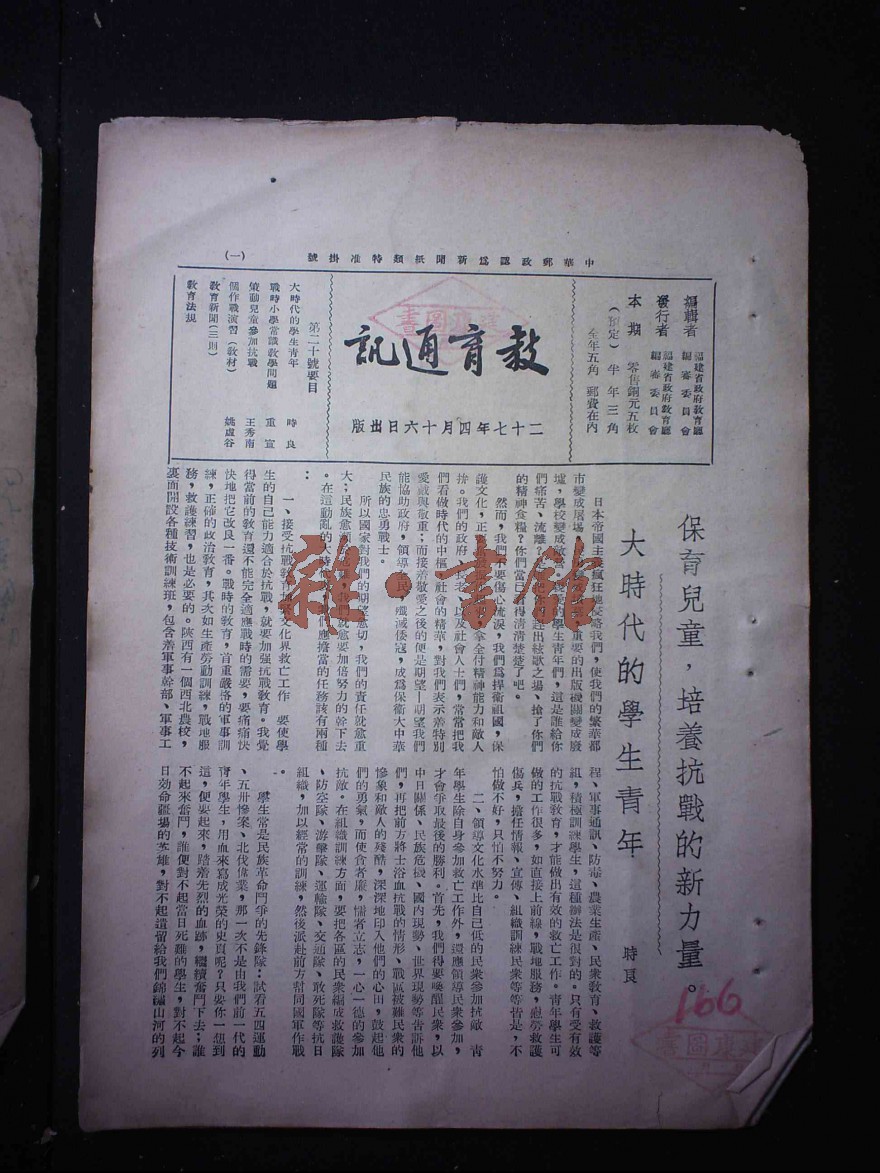 中華郵政認爲新聞紙類特准掛號
(一)
編輯者 福建省政府教育廳編審委員會
發行者 福建省政府教育廳編審委員會
本期 零售銅元五枚
(預定) 半年三角
全年五角 郵費在內
教育通訊
二十七年四月十六日出版
第二十號要目
大時代的學生青年 時良
戰時小學常識教學問題 重宣
策動兒童參加抗戰 王秀南
個作戰演習(教材) 姚虛谷
教育新聞(三則)
教育法規
保育兒童,培養抗戰的新力量。
大時代的學生青年
時良
日本帝國主義瘋狂地侵略我們,使我們的繁華都
市變成屠場,重要的出版機關變成廢
墟,學校變成的學生青年們,這是誰給你
們痛苦、流離?趕出絃歌之場、搶了你們
的精神食糧?你們當已看得清清楚楚了吧。
然而,我們不要傷心流淚,我們爲捍衛祖國,保
護文化,正拿全付精神能力和敵人
拚。我們的政府以及社會人士們,常常把我
們看做時代的中樞,社會的精華,對我們表示着特別
愛戴與敬重;而接着敬愛之後的便是期望—期望我們
能協助政府,領導民,殲滅倭寇,成爲保衛大中華
民族的忠勇戰士。
所以國家對我們的期望愈切,我們的責任就愈重
大;民族愈我們就愈要加倍努力的幹下去
。在這動亂的大時們應擔當的任務該有兩種
:
一、接受抗戰教育加緊文化界救亡工作 要使學
生的自己能力適合於抗戰,就要加強抗戰教育。我覺
得當前的教育還不能完全適應戰時的需要,要痛痛快
快地把它改良一番。戰時的教育,首重嚴洛的軍事訓
練,正確的政治教育,其次如生產勞動訓練,戰地服
務,救護練習,也是必要的。陝西有一個西北農校,
裏面開設各種技術訓練班,包含着軍事幹部、軍事工
程、軍事通訊、防毒、農業生產、民衆教育、救護等
組,積極訓練學生,這種辦法是很對的。只有受有效
的抗戰教育,才能做出有效的救亡工作。青年學生可
做的工作很多,如直接上前線,戰地服務,慰勞救護
傷兵,擔任情報、宣傳、組織訓練民衆等等皆是,不
怕做不好,只怕不努力。
二、領導文化水準比自己低的民衆參加抗敵 青
年學生除自身參加救亡工作外,還應領導民衆參加,
才會爭取最後的勝利。首先,我們得要喚醒民衆,以
中日關係、民族危機、國內現勢、世界現勢等告訴他
們,再把前方將士浴血抗戰的情形、戰區被難民衆的
慘象和敵人的殘酷,深深地印入他們的心田,鼓起他
們的勇氣,而使貪者廉,懦者立志,一心一德的參加
抗敵。在組織訓練方面,要把各區的民衆編成救護隊
、防空隊、游擊隊、運輸隊、交通隊、敢死隊等抗日
組織,加以經常的訓練,然後派赴前方幫同國軍作戰
。
學生常是民族革命鬥爭的先鋒隊:試看五四運動
、五卅慘案、北伐偉業,那一次不是由我們前一代的
靑年學生,用血來寫成光榮的史頁呢?只要你一想到
這,便要起來,踏着先烈的血跡,繼續奮鬥下去;誰
不起來奮鬥,誰便對不起當日死難的學生,對不起今
日効命疆場的英雄,對不起遺留給我們錦繡山河的列
166
雜·書館